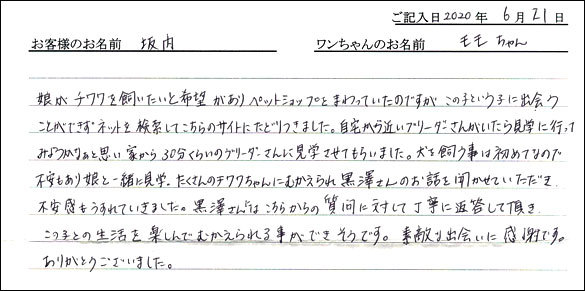 ご記入日2020年 6月21日
お客様のお名前 坂内 ワンちゃんのお名前 モモちゃん
娘がチワワを飼いたいと希望がありペットショップとまわっていたのですがこの子という子に出会う
ことができずネットを検索してこちらのサイトにたどりつきました。自宅から近いブリーダーさんがいたら見学に行って
みようかなぁと思い家から30分くらいのブリーダーさんに見学させてもらいました。犬を飼う事は初めてなので
不安もあり娘と一緒に見学。たくさんのチワワちゃんにむかえられ黒澤さんのお話を聞かせていただき
不安感もうすれていきました。黒澤さんはこちらからの質問に対して丁寧に返答して頂き
こっ子との生活を楽しんでむかえられる事ができそうです。素敵な出会いに感謝です。
ありがとうございました。